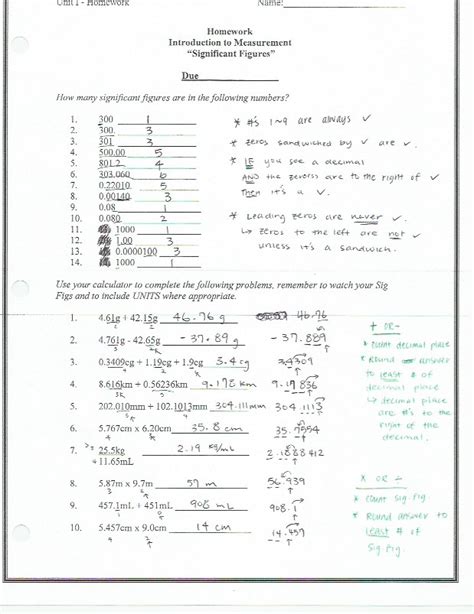 Unit 1 - Homework Name:
Homework
Introduction to Measurement
"Significant Figures"
Due
How many significant figures are in the following numbers?
1. 300 1
2. 300. 3
3. 301 3
4. 500.00 5
5. 801.2 4
6. 303.060 6
7. 0.22010 5
8. 0.00140 3
9. 0.08 1
10. 0.080 2
11. 1000 1
12. 1.00 3
13. 0.0000100 3
14. 1000 1
* #'s 1~9 are always ✓
* zeros sandwiched by ✓ are ✓.
* IF you see a decimal
AND the zeros are to the right of ✓
Then it's a ✓.
* Leading zeros are never ✓.
↳ zeros to the left are not ✓
unless it's a sandwich.
Use your calculator to complete the following problems, remember to watch your Sig
Figs and to include UNITS where appropriate.
1. 4.61g + 42.15g 46.76 g 46.76
2. 4.761g - 42.65g -37.89 g -37.889
3. 0.3409cg + 1.19cg + 1.9cg 3.4 cg 3.4309
4. 8.616km + 0.56236km 9.178 km 9.17836
5. 202.010mm + 102.1013mm 304.111mm 304.1113
6. 5.767cm x 6.20cm 35.8 cm 35.7554
7. 25.5kg 2.19 kg/mL 2.1888412
÷ 11.65mL
8. 5.87m x 9.7m 57 m 56.939
9. 457.1mL + 451mL 908 mL 908.1
10. 5.457cm x 9.0cm 14 cm 14.459
+ OR -
* count decimal place
* Round answer
to least # of
decimal place
↳ decimal place
are #'s to the
right of the
decimal.
x OR ÷
* count sig. fig
* Round answer to
least # of
sig. fig.